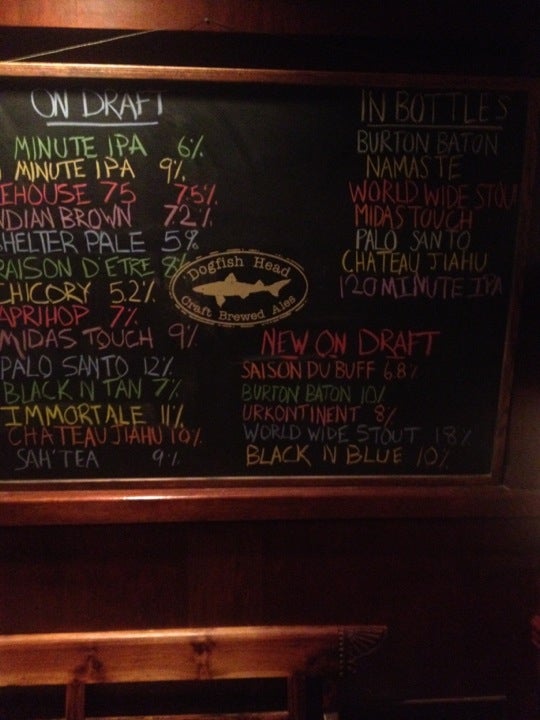 ON DRAFT
MINUTE IPA 6%
MINUTE IPA 9%
EHOUSE 75 7.5%
NDIAN BROWN 7.2%
HELTER PALE 5%
RAISON D'ETRE 8%
CHICORY 5.2%
APRIHOP 7%
MIDAS TOUCH 9%
PALO SANTO 12%
BLACK N TAN 7%
IMMORTALE 11%
CHATEAU JIAHU 10%
SAH'TEA 9%
Dogfish Head
Craft Brewed Ales
IN BOTTLES
BURTON BATON
NAMASTE
WORLD WIDE STOU
MIDAS TOUCH
PALO SANTO
CHATEAU JIAHU
120 MINUTE IPA
NEW ON DRAFT
SAISON DU BUFF 6.8%
BURTON BATON 10%
URKONTINENT 8%
WORLD WIDE STOUT 18%
BLACK N BLUE 10%